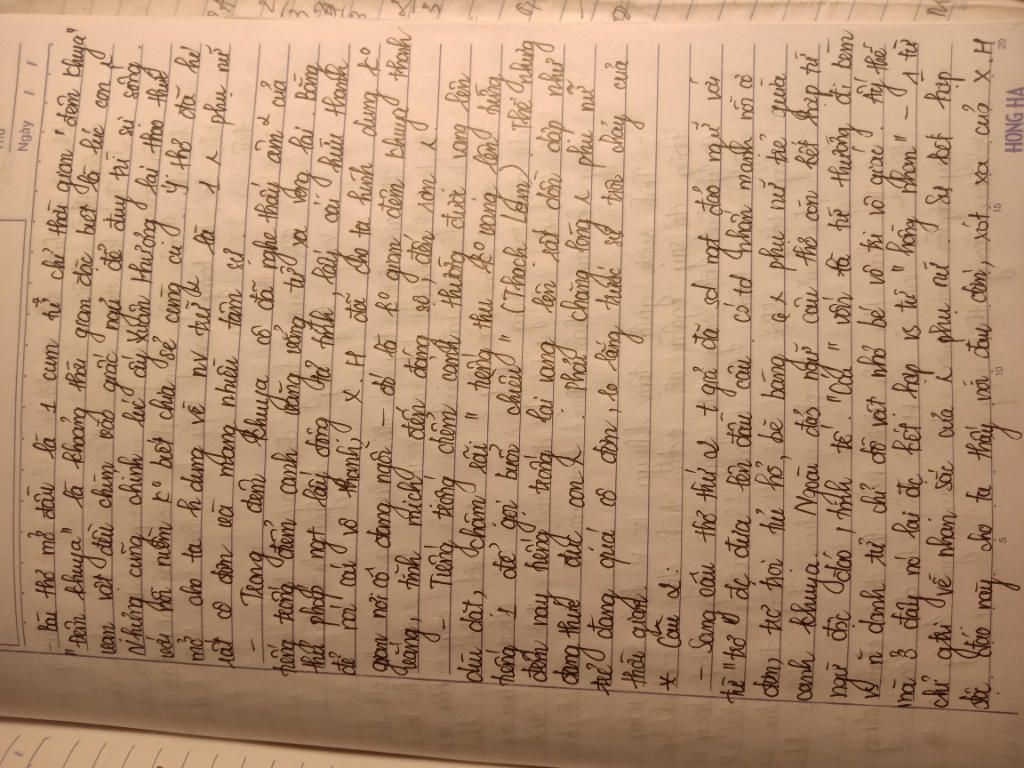 Thứ
Ngày
- Bài thơ mở đầu là 1 cụm từ chỉ thời gian "đêm khuya"
"Đêm khuya" là khoảng thời gian đã biệt là lúc con ng
vạn vật đều chìm vào giấc ngủ để duy trì sự sống
Nhưng cũng chính lúc ấy Xuân Hương lại thao thức
với nỗi niềm ko biết chia sẻ cùng ai. Ý thơ đã hé
mở cho ta h dung về nv trữ là 1 phụ nữ
rất cô đơn và mang nhiều tâm sự
- Trong đêm khuya cô đã nghe thấy âm của
tiếng trống điểm canh văng vẳng từ xa vọng lại bằng
thủ pháp nghệt lấy động tả tĩnh, lấy cái hữu thanh
để nói cái vô thanh, X H đã cho ta hình dung ko
gian nơi cô đang ngồi - đó là ko gian đêm khuya thanh
vắng, tĩnh mịch đến đáng sợ, đến rợn
- Tiếng trống điểm canh thường được vang lên
đều đặt, chậm rãi " tiếng trống thu ko vang lên từng
tiếng 1 để gọi buổi chiều" (Thạch Lam) Thế nhưng
đêm nay tiếng trống lại vang lên rất dồn dập như
đang thúc giục con Phải chăng lòng phụ nữ
ấy đang quá cô đơn, lo lắng trước sự trôi chảy của
thời gian
* Câu 2:
- Sang câu thơ thứ 2 t giả đã sd ngt đảo ngữ với
từ "trơ" đc đưa lên đầu câu có td nhấn mạnh nỗi cô
đơn, trơ trọi hụ hổ, bẽ bàng của phụ nữ trẻ giữa
canh khuya. Ngoài đảo ngữ câu thơ còn kết hợp từ
ngữ độc đáo, tinh tế. "Cái" vốn là từ thường đi kèm
n danh từ chỉ đồ vật nhỏ bé vô tri vô giác ấy thế
mà ở đây nó lại đc kết hợp vs từ "hồng nhan" - 1 từ
chỉ ghi vẻ nhan sắc của phụ nữ. Sự kết hợp
độc đáo này cho ta thấy nỗi đau đớn, xót xa của X.H
HONG HA
5
10
15
20